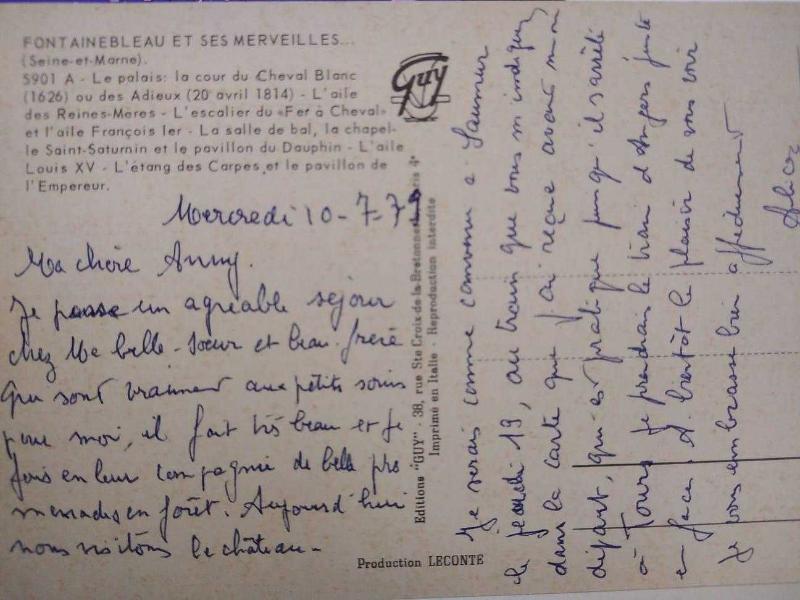 FONTAINEBLEAU ET SES MERVEILLES...
(Seine-et-Marne).
S901 A - Le palais: la cour du Cheval Blanc
(1626) ou des Adieux (20 avril 1814) - L'aile
des Reines-Mères - L'escalier du «Fer à Cheval»
et l'aile François Ier - La salle de bal, la chapel-
le Saint-Saturnin et le pavillon du Dauphin - L'aile
Louis XV - L'étang des Carpes et le pavillon de
l'Empereur.
Guy
Mercredi 10-7-
Ma chère Anny.
Je passe un agréable séjour
chez Ma belle-soeur et beau-frère
qui sont vraiment aux petits soins
pour moi, il fait très beau et je
fais en leur compagnie de belles pro
menades en forêt. Aujourd'hui
nous visitons le château-
Editions "GUY" - 38, rue Ste Croix-de-la-Bretonnerie Paris 4e
Imprimé en Italie - Reproduction interdite
Production LECONTE
Je serais comme convenu à Saumur
le jeudi 19, au train que vous m'indiquez
dans la carte que j'ai reçue avant mon
départ, qui est pratique puisqu'il s'arrête
à Tours je prendrais le train d'Angers juste
en face. A bientôt le plaisir de vous voir
Je vous embrasse bien affectueusement